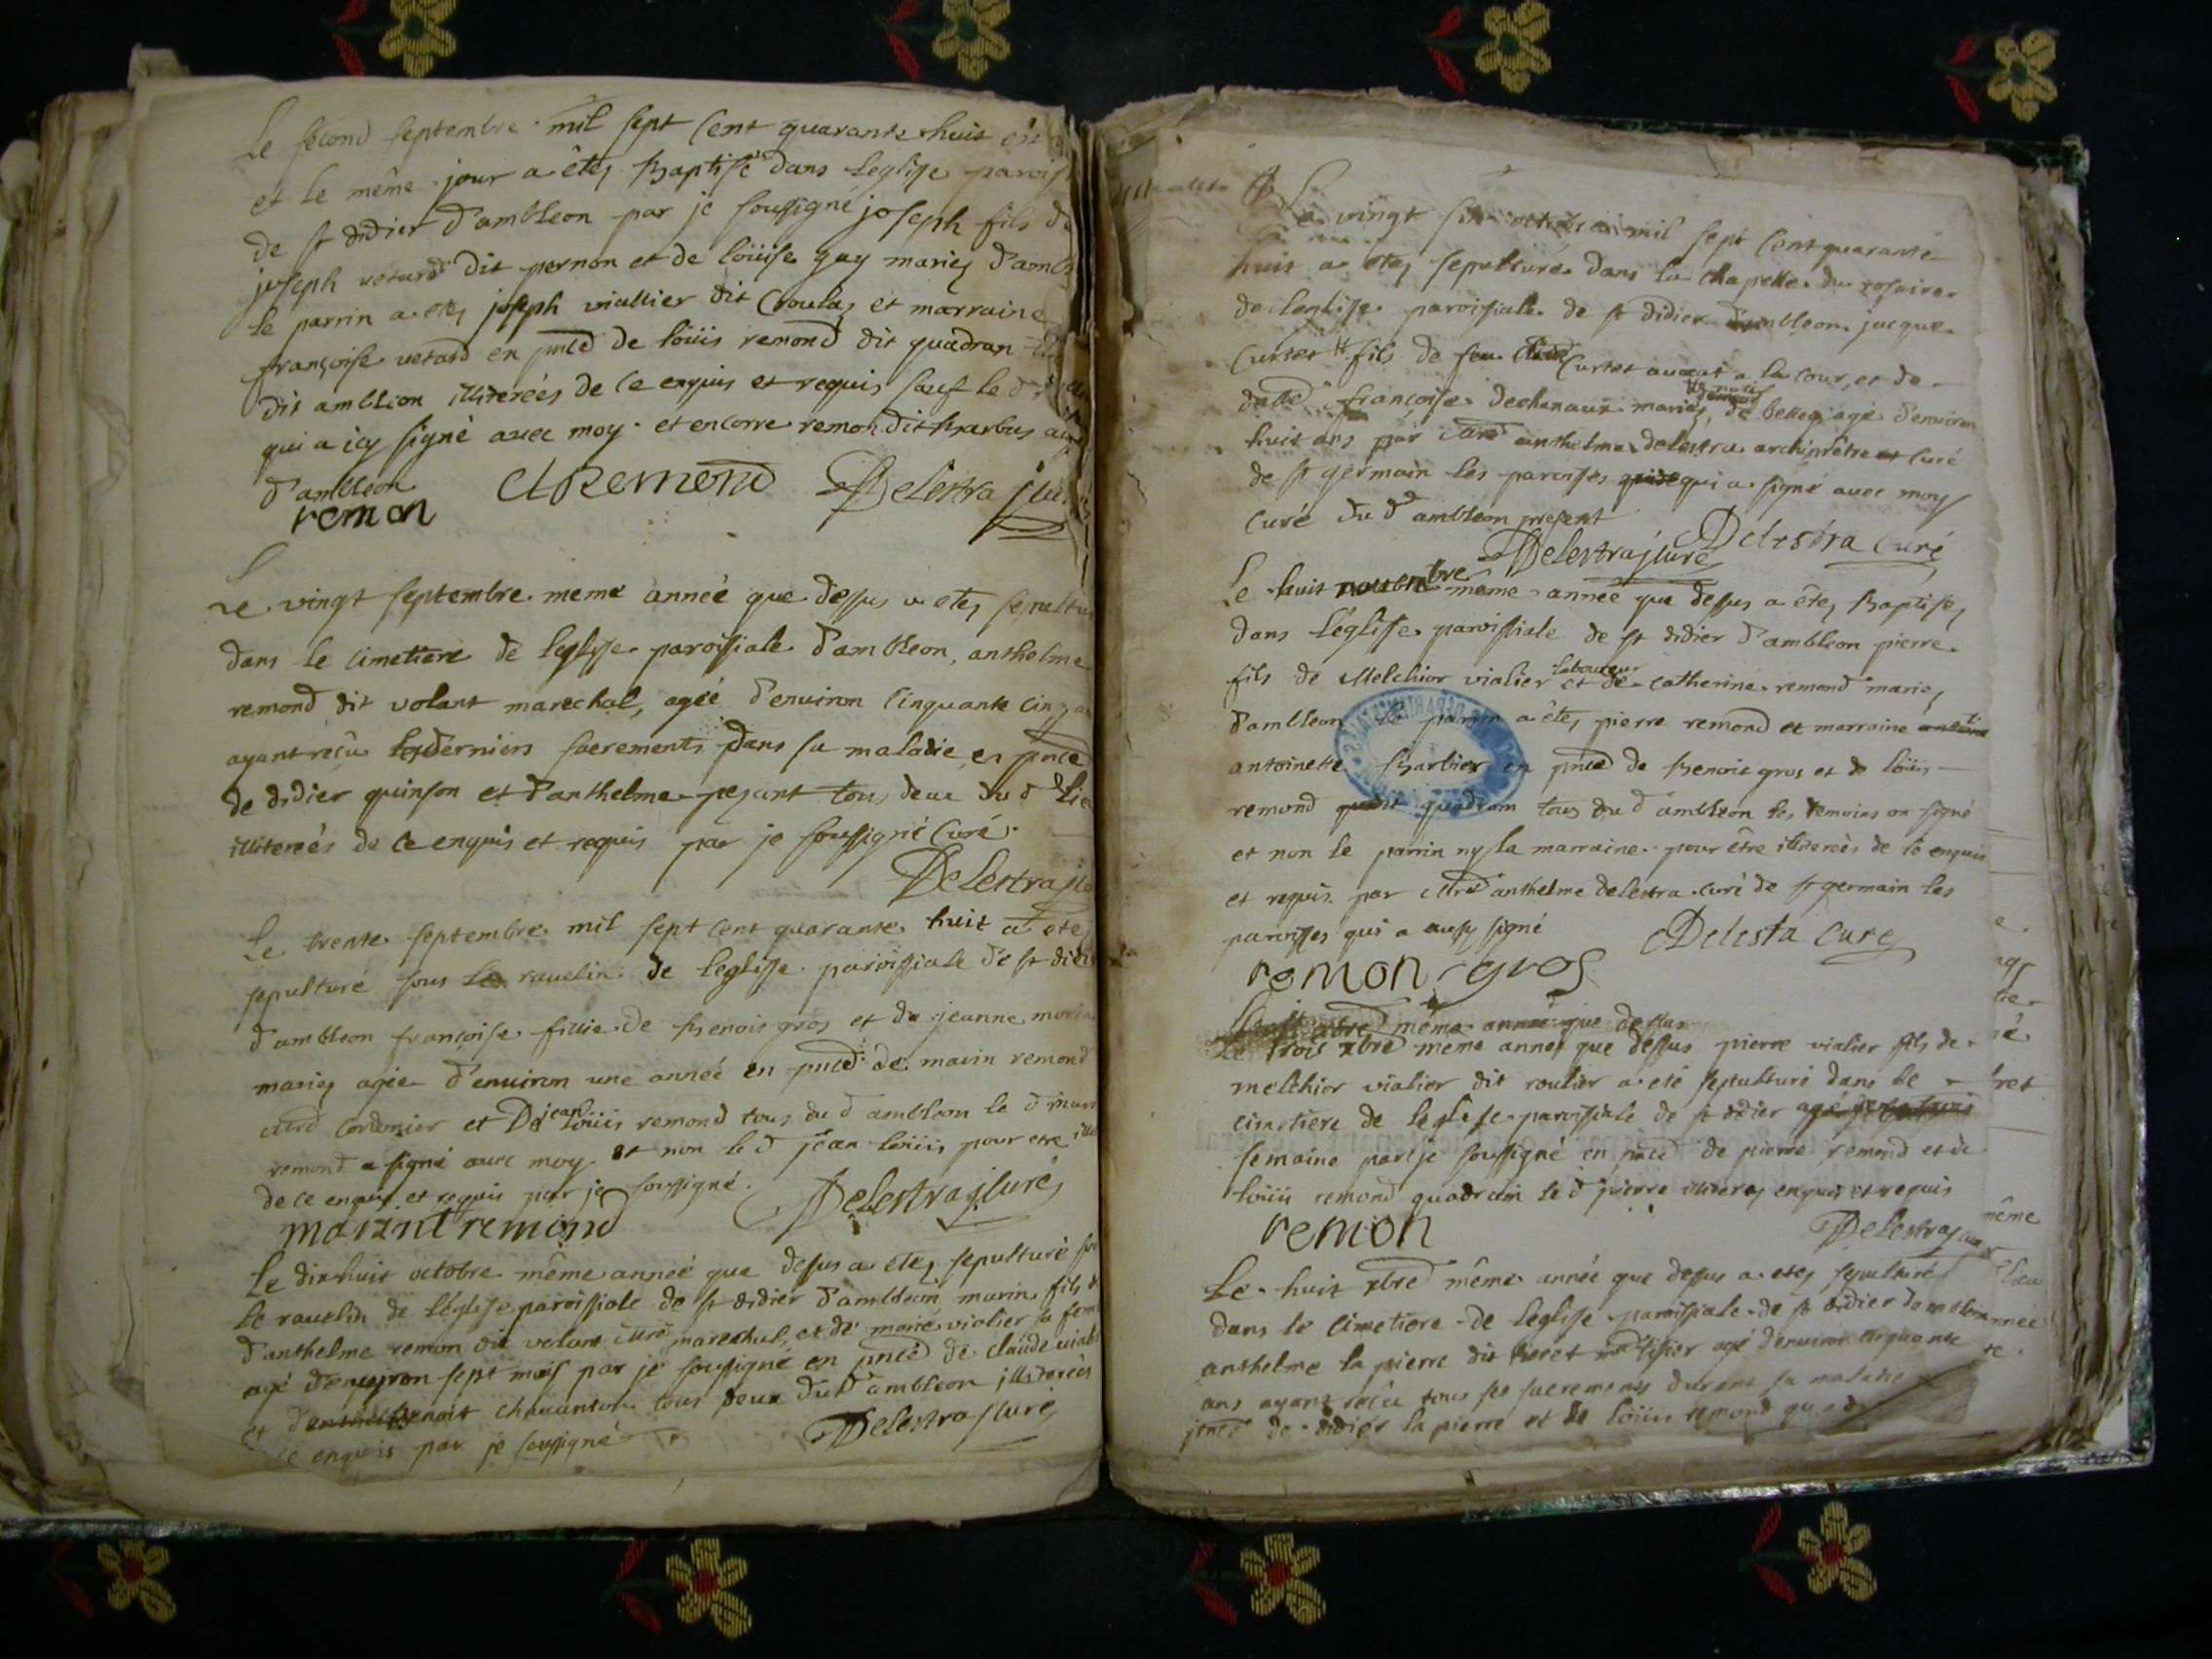 Le second septembre mil sept cent quarante huit est
et le même jour a êtez Baptisé dans leglise parois
de st didier d'ambleon par je soussigné joseph fils de
joseph vetard dit pernon et de loüise guy mariez d'amb
le parrin a etez joseph viallier dit Croulaz et marraine
françoise vetard en pnce de loüis remond dit quadran
dit ambleon illitereés de ce enquis et requis sauf le d
qui a icy signé avec moy et encorre remon dit barbus
d'ambleon
remon Cl Remond Delestra
Le vingt septembre meme anneé que dessus a etez sepultu
dans le cimetiere de leglise paroissiale d'ambleon, anthelme
remond dit volant marechal, ageé d'environ cinquante cinq
ayant reçû les derniers sacrements dans sa maladie en pnce
de didier quinson et d'anthelme pezant tous deux du d lie
illitereés de ce enquis et requis par je soussigné Curé
Delestra
Le trente septembre mil sept cent quarante huit a ete
sepulturé sous le ravelin de leglisse paroissiale de st didi
d'ambleon françoise fillie de Benoit gros et de jeanne
mariez ageé d'environ une anneé en pnce de marin remond
cordonier et De jean loüis remond tous du d ambleon le d mar
remond a signé avec moy et non le d jean loüis pour etre
de ce enquis et requis par je soussigné.
marint remond Delestra Curé
Le dixhuit octobre même anneé que dessus a etez sepulturé
le ravelin de léglise paroissiale de st didier d'ambleon marin fils
d'anthelme remon dit volant marechal, et de marie vialier sa fem
agé d'environ sept mois par je soussigné en pnce de claude
et Benoit chavanton tous deux du d ambleon illitereés
de ce enquis par je soussigné Delestra Curé
Le vingt six mil sept cent quarante
huit a etez sepulturé dans la chapelle du rosaire
de leglise paroissiale de st didier d'ambleon jacque
Curtet fils de feu Curtet avocat a la cour, et de
françoise dechanaux mariez, de belley agé d'environ
huit ans par anthelme delestra archiprêtre et curé
de st germain les paroisses qui a signé avec moy
curé du d ambleon present
Delestra Curé Delestra curé
Le huit novembre même anneé que dessus a êtez Baptisez
dans l'églisse paroissiale de st didier d'ambleon pierre
fils de Melchior vialier laboureur et de catherine remond mariez
d'ambleon le parrin a êtez pierre remond et marraine
antoinette Barbier en pnce de Benoit gros et de loüis
remond quadram tous du d ambleon les temoins on signé
et non le parrin ny la marraine pour être illitereés de ce enquis
et requis par anthelme delestra curé de st germain les
paroisses qui a aussy signé
remon gros Delesta curé
même anneé que dessus
Le trois xbre meme anneé que dessus pierre vialier fils de
melchior vialier dit roulier a eté sepulturé dans le
cimetiere de leglise paroissiale de st didier
semaine par je soussigné en pnce de pierre remond et de
loüis remond quadram le d pierre enquis et requis
remon Delestra
Le huit xbre même année que dessus a etez sepulturé
dans le cimetiere de leglise paroissiale de st didier
anthelme la pierre dit agé d'environ cinquante
ans ayant reçû tous ses sacrements durant sa maladie
pnce de didier la pierre et de loüis remond